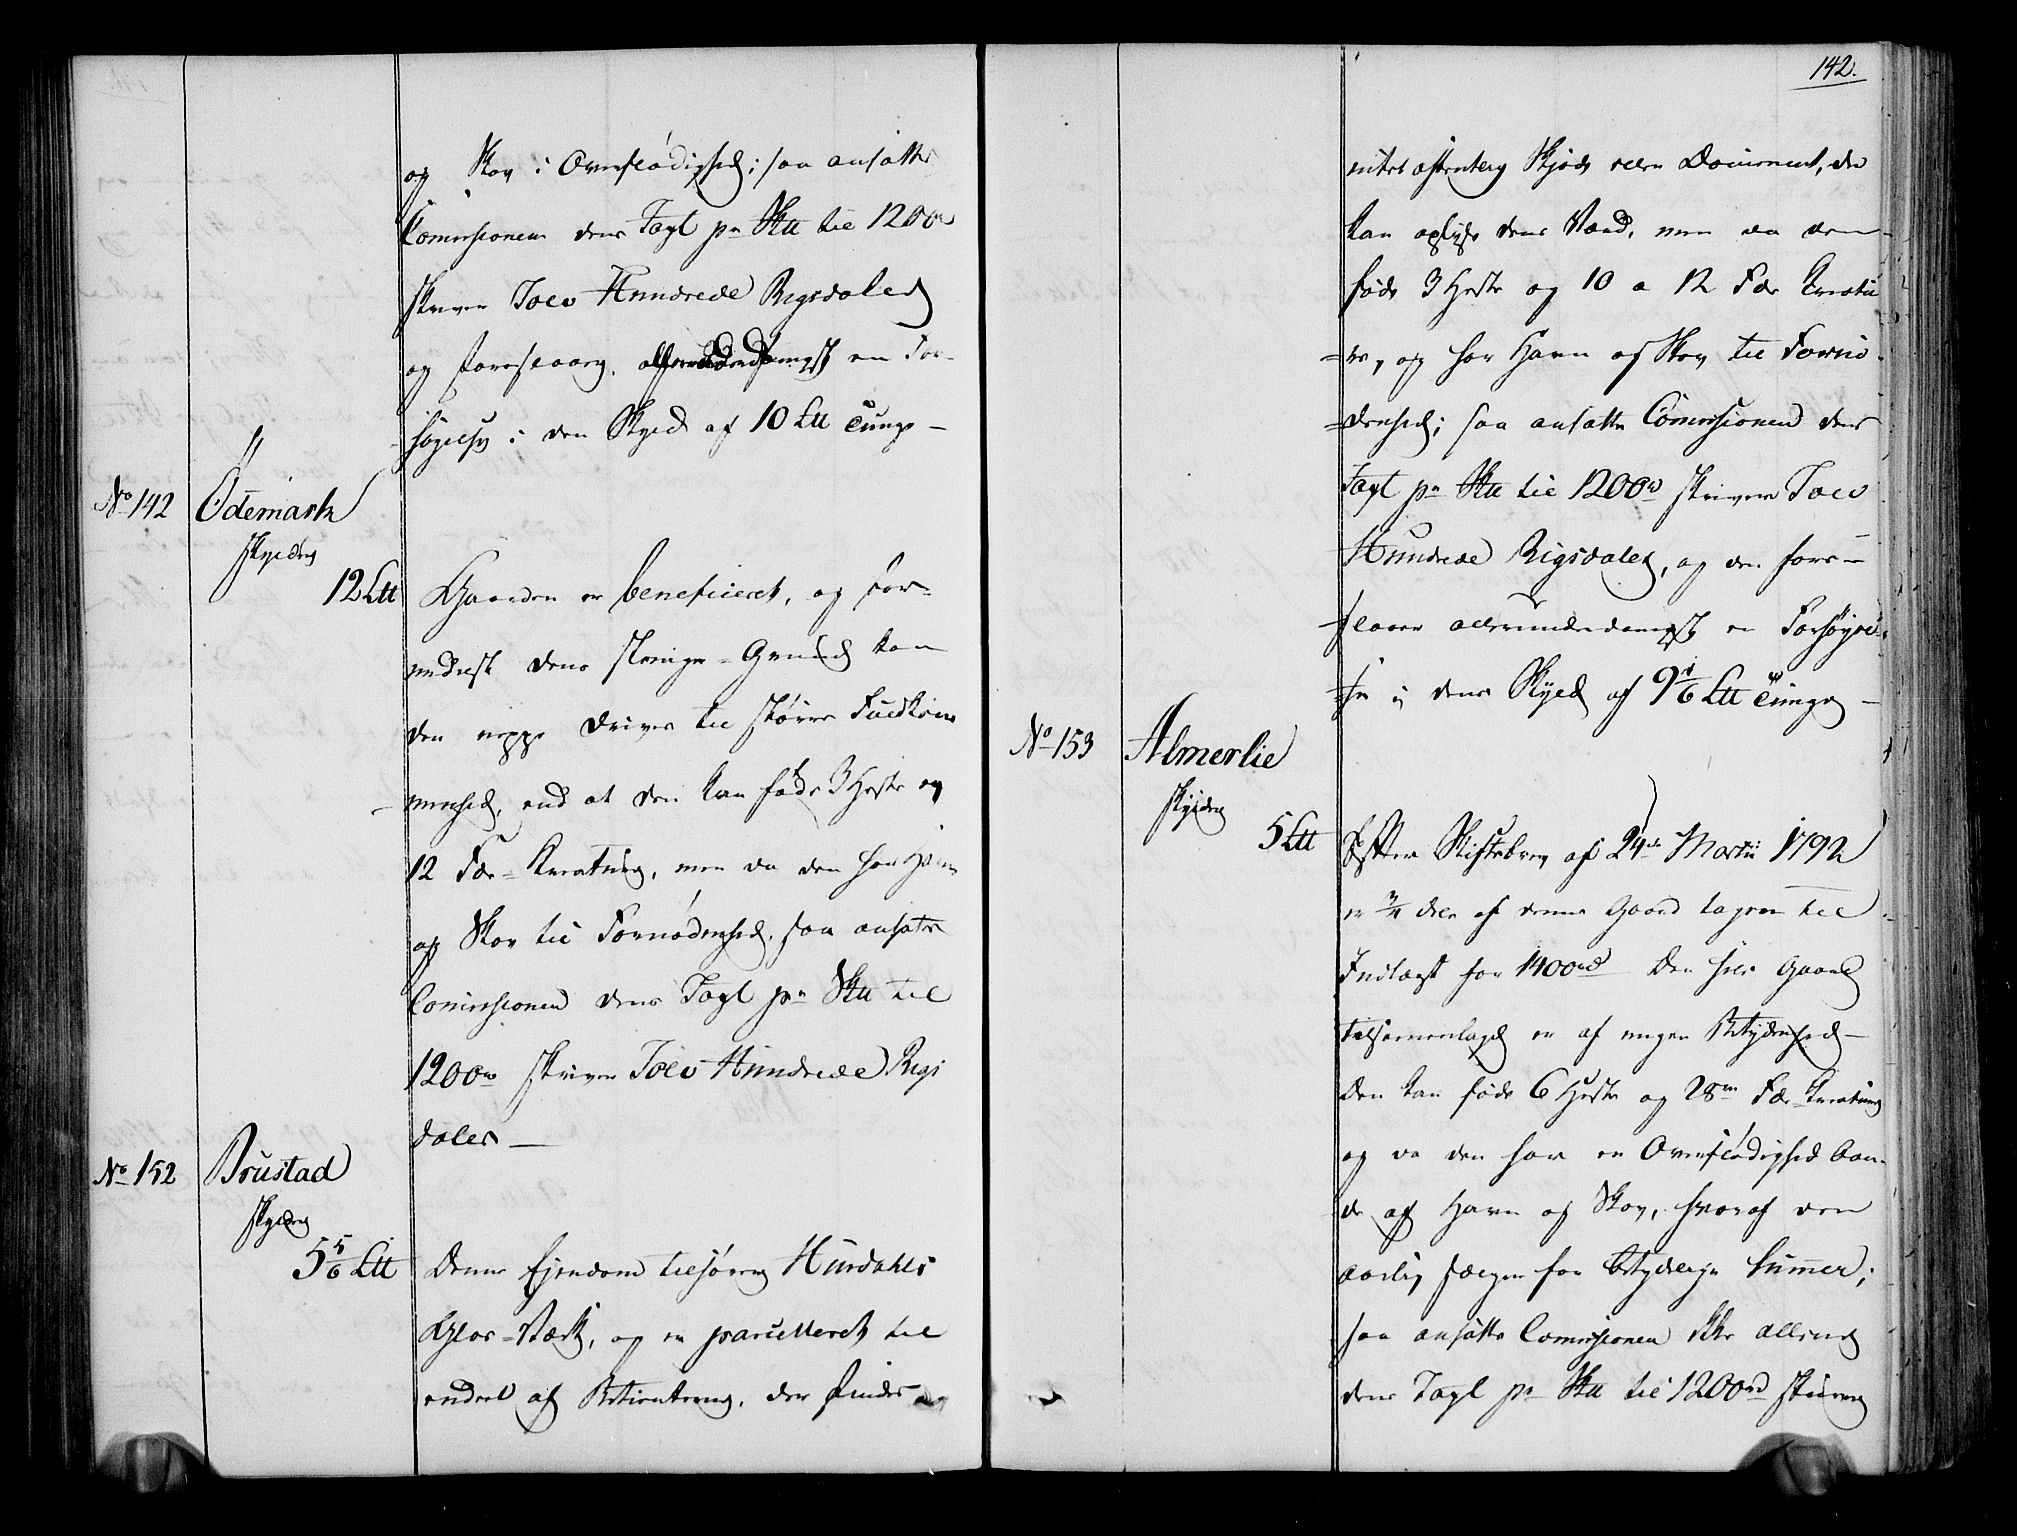 og Skov i Overflødighed; saa ansatte
Comissionen dens Taxt pr Sk<sup>tt</sup> til 1200 rd
skriver Tolv Hundrede Rigsdaler
og foreslaaer, allerunderdanigst en For-
høyelse i den Skyld af 10 Ltt Tunge -
No 142
Ödemark
skylder
12 Ltt
Gaarden er beneficeret, og for-
medelst dens steenige Grund kan
den neppe drives til større Fuldkom-
menhed, end at den kan føde 3 Heste og
12 Fæ-Kreature, men da den har Havn
og Skov til Fornødenhed, saa ansatte
Comissionen dens Taxt pr Sktt til
1200 rd skriver Tolv Hundrede Rigs
daler -
No 152
Brustad
skylder
5 5/6 Ltt
Denne Ejendom tilhører Hurdahls
Glas-Værk, og er parcelleret til
endeel af Betienterne, der findes
142.
intet astemtelig Skjøde eller Document, der
kan oplyse dens Værd, men da den
føde 3 Heste og 10 a 12 Fæ Kreatu
re, og har Havn og Skov til Fornø-
denhed; saa ansatte Comissionen dens
Taxt pr Sktt til 1200 rd skriver Tolv
Hundrede Rigsdaler, og den fore-
slaaer allerunderdanigst en Forhøyel-
se i dens Skyld af 9 1/6 Ltt Tunge -
No 153
Almerlie
skylder
5 Ltt
Efter Skiftebrev af 24de Martii 1792
er 3/4 Dele af denne Gaard tagen til
Indtægt for 1400 rd Den hele Gaard
tilsammenlagd er af megen Betydenhed -
Den kan føde 6 Heste og 28 Fæ-Kreature
og da den har en Overflødighed baa-
de af Havn og Skov, hvoraf den
aarlig sælger for betydelige Summer;
saa ansatte Comissionen
dens Taxt pr Sktt til 1200 rd skriver